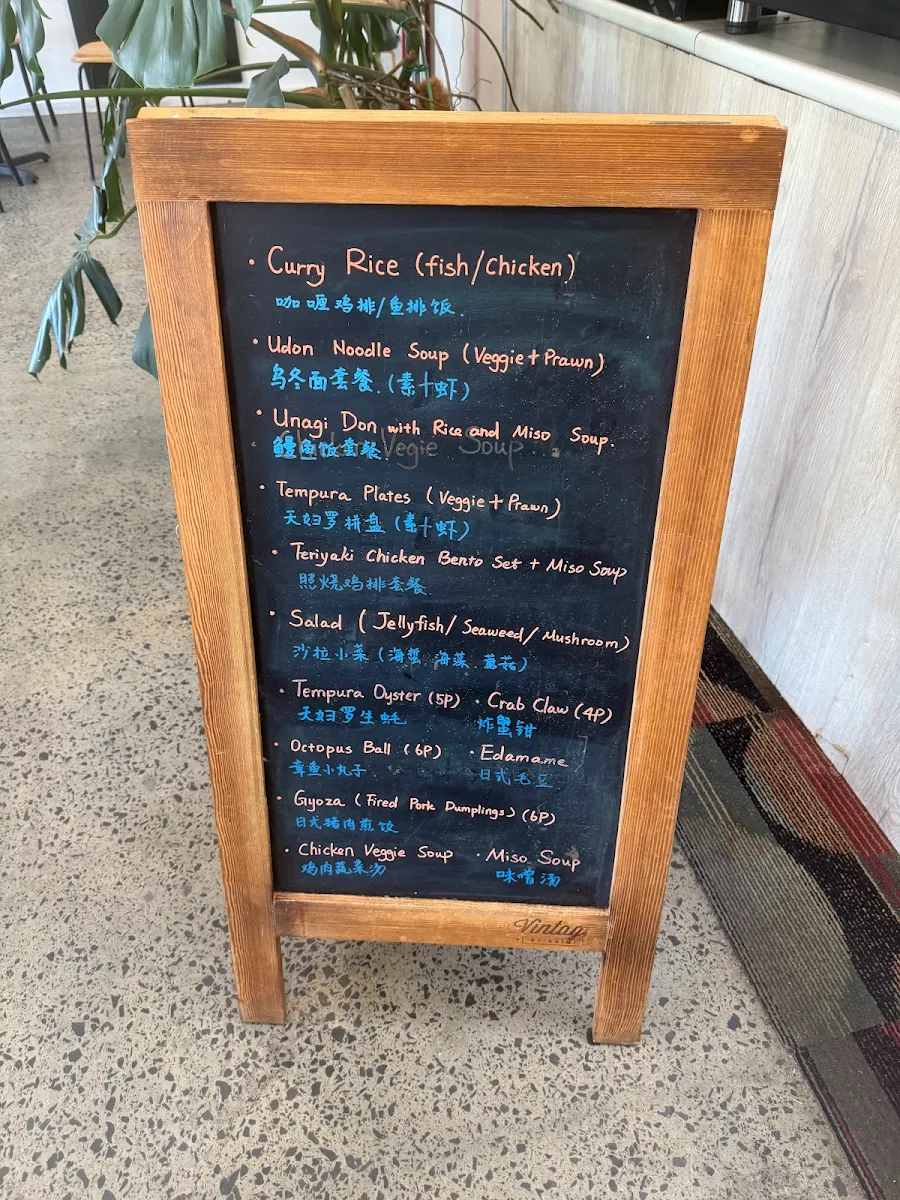 • Curry Rice (fish/Chicken)
咖喱鸡排/鱼排饭.
• Udon Noodle Soup (Veggie+Prawn)
乌冬面套餐.(素+虾)
• Unagi Don with Rice and Miso Soup.
鳗鱼饭套餐
Vegie Soup
• Tempura Plates (Veggie+Prawn)
天妇罗拼盘(素+虾)
• Teriyaki Chicken Bento Set + Miso Soup
照烧鸡排套餐
• Salad (Jellyfish/Seaweed/Mushroom)
沙拉小菜(海蜇.海藻.蘑菇)
• Tempura Oyster (5P) • Crab Claw (4P)
天妇罗生蚝 炸蟹钳
• Octopus Ball (6P) • Edamame
章鱼小丸子 日式毛豆
• Gyoza (Fired Pork Dumplings) (6P)
日式猪肉煎饺
• Chicken Veggie Soup • Miso Soup
鸡肉蔬菜汤 味噌汤
Vintag